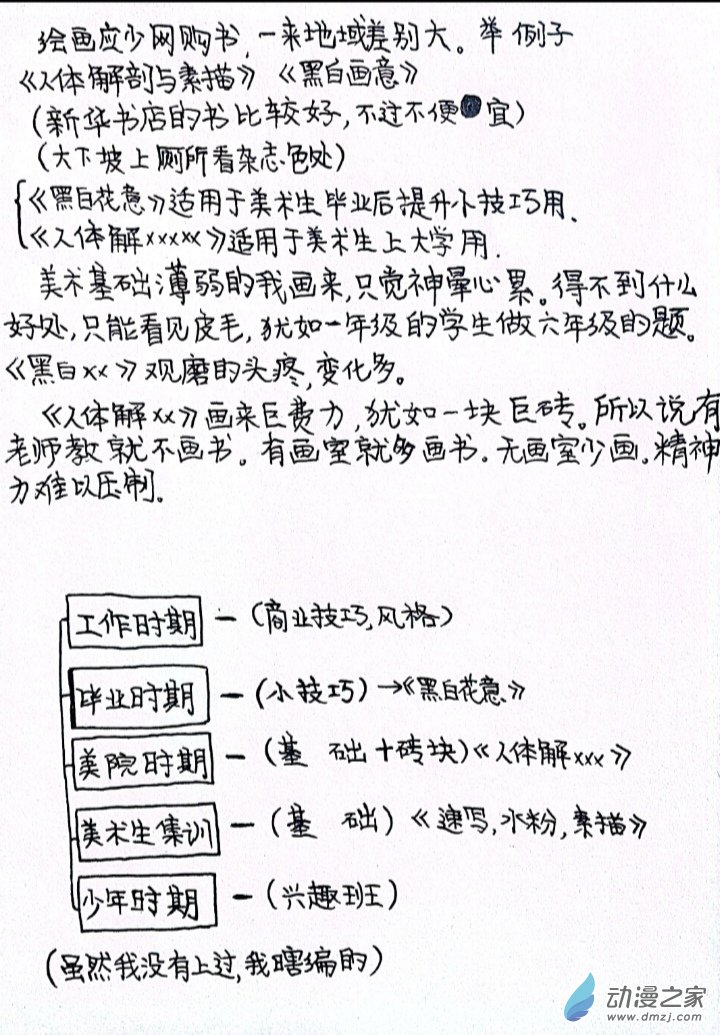 绘画应少网购书,一来地域差别大。举例子
《人体解剖与素描》 《黑白画意》
(新华书店的书比较好,不过不便宜)
(大下坡上厕所看杂志色处)
《黑白花意》适用于美术生毕业后提升小技巧用.
《人体解xxxxx》适用于美术生上大学用.
美术基础薄弱的我画来,只觉神晕心累。得不到什么
好处,只能看见皮毛,犹如一年级的学生做六年级的题。
《黑白xx》观磨的头疼,变化多。
《人体解xx》画来巨费力,犹如一块巨砖。所以说有
老师教就不画书.有画室就多画书.无画室少画.精神
力难以压制.
工作时期 — (商业技巧,风格)
毕业时期 — (小技巧)→《黑白花意》
美院时期 — (基 础+砖块)《人体解xxx》
美术生集训 — (基 础) 《速写,水粉,素描》
少年时期 — (兴趣班)
(虽然我没有上过,我瞎编的)
动漫之家
www.dmzj.com